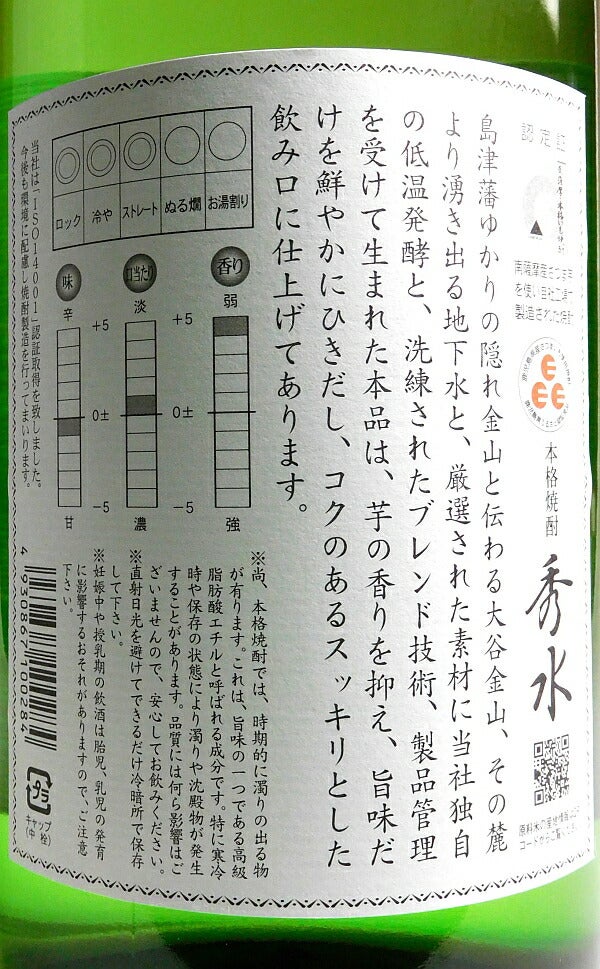 認定証
南薩摩産さつま芋
を使い自社工場で
製造された焼酎
本格焼酎
秀水
島津藩ゆかりの隠れ金山と伝わる大谷金山、その麓
より湧き出る地下水と、厳選された素材に当社独自
の低温発酵と、洗練されたブレンド技術、製品管理
を受けて生まれた本品は、芋の香りを抑え、旨味だ
けを鮮やかにひきだし、コクのあるスッキリとした
飲み口に仕上げてあります。
お湯割り
ぬる燗
ストレート
冷や
ロック
香り
弱
強
口当たり
淡
濃
味
辛
甘
+5
0±
-5
+5
0±
-5
当社は「ISO14001」認証取得を致しました。
今後も環境に配慮し焼酎製造を行ってまいります。
※尚、本格焼酎では、時期的に濁りの出る物
が有ります。これは、旨味の一つである高級
脂肪酸エチルと呼ばれる成分です。特に寒冷
時や保存の状態により濁りや沈殿物が発生
することがあります。品質には何ら影響はご
ざいませんので、安心してお飲みください。
※直射日光を避けてできるだけ冷暗所で保存
して下さい。
※妊娠中や授乳期の飲酒は胎児、乳児の発育
に影響するおそれがありますので、ご注意
下さい。
4 930867 100284
プラ
キャップ
(中栓)